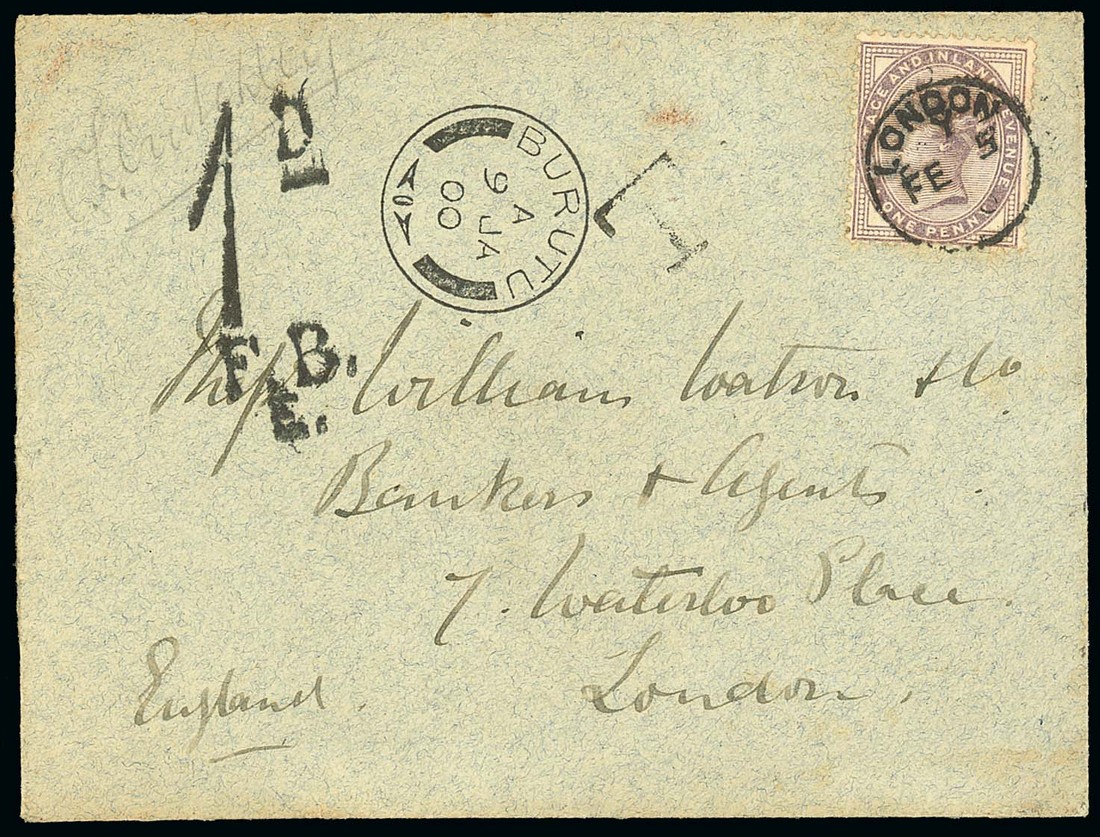 1D
F.B.
E.
BURUTU
A
9 JA
00
T
POSTAGE AND INLAND REVENUE
ONE PENNY
LONDON
Y
FE 5
William Watson & Co
Bankers & Agents
7. Waterloo Place.
London.
England.